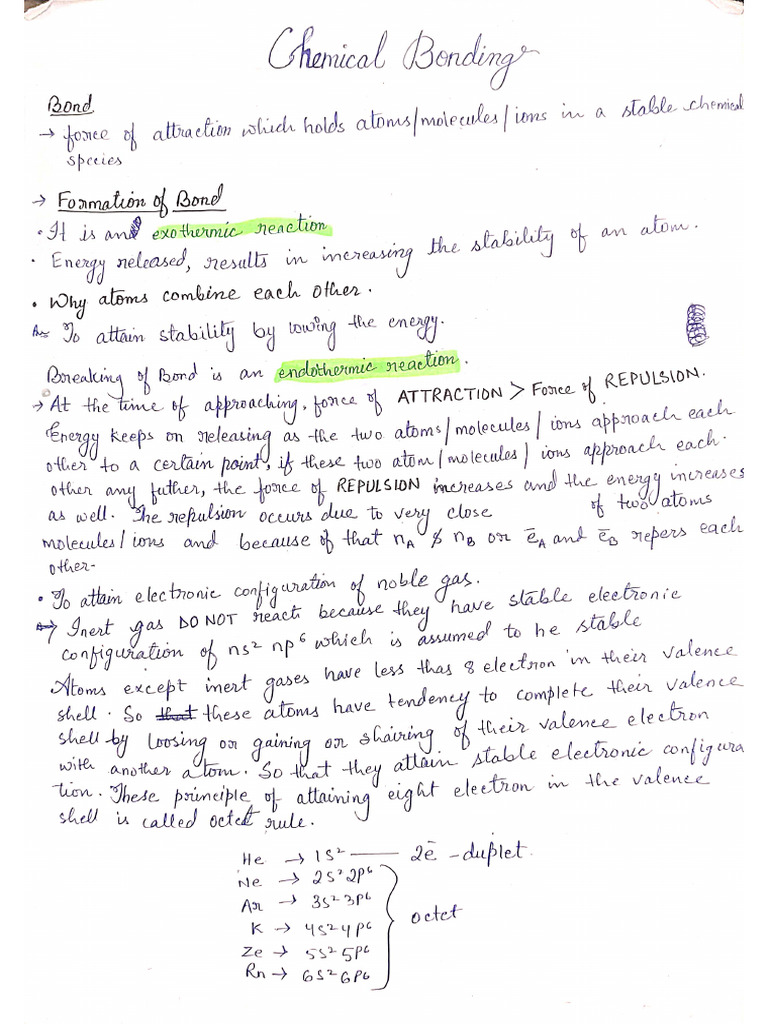 Chemical Bonding
Bond
→ force of attraction which holds atoms/molecules/ions in a stable chemical
species
→ Formation of Bond
• It is an exothermic reaction
• Energy released, results in increasing the stability of an atom.
• Why atoms combine each other.
Ans To attain stability by lowing the energy.
Breaking of Bond is an endothermic reaction.
→ At the time of approaching, force of ATTRACTION > Force of REPULSION.
Energy keeps on releasing as the two atoms/molecules/ions approach each
other to a certain point, if these two atom/molecules/ions approach each
other any futher, the force of REPULSION increases and the energy increases
as well. The repulsion occurs due to very close of two atoms
molecules/ions and because of that n_A & n_B or ē_A and ē_B repers each
other.
• To attain electronic configuration of noble gas.
⇒ Inert gas DO NOT react because they have stable electronic
configuration of ns² np⁶ which is assumed to be stable
Atoms except inert gases have less thas 8 electron in their valence
shell. So that these atoms have tendency to complete their valence
shell by loosing or gaining or shairing of their valence electron
with another atom. So that they attain stable electronic configura
tion. These principle of attaining eight electron in the valence
shell is called octet rule.
He → 1s² —— 2ē - duplet.
Ne → 2s² 2p⁶
Ar → 3s² 3p⁶
K → 4s² 4p⁶
octet
Ze → 5s² 5p⁶
Rn → 6s² 6p⁶